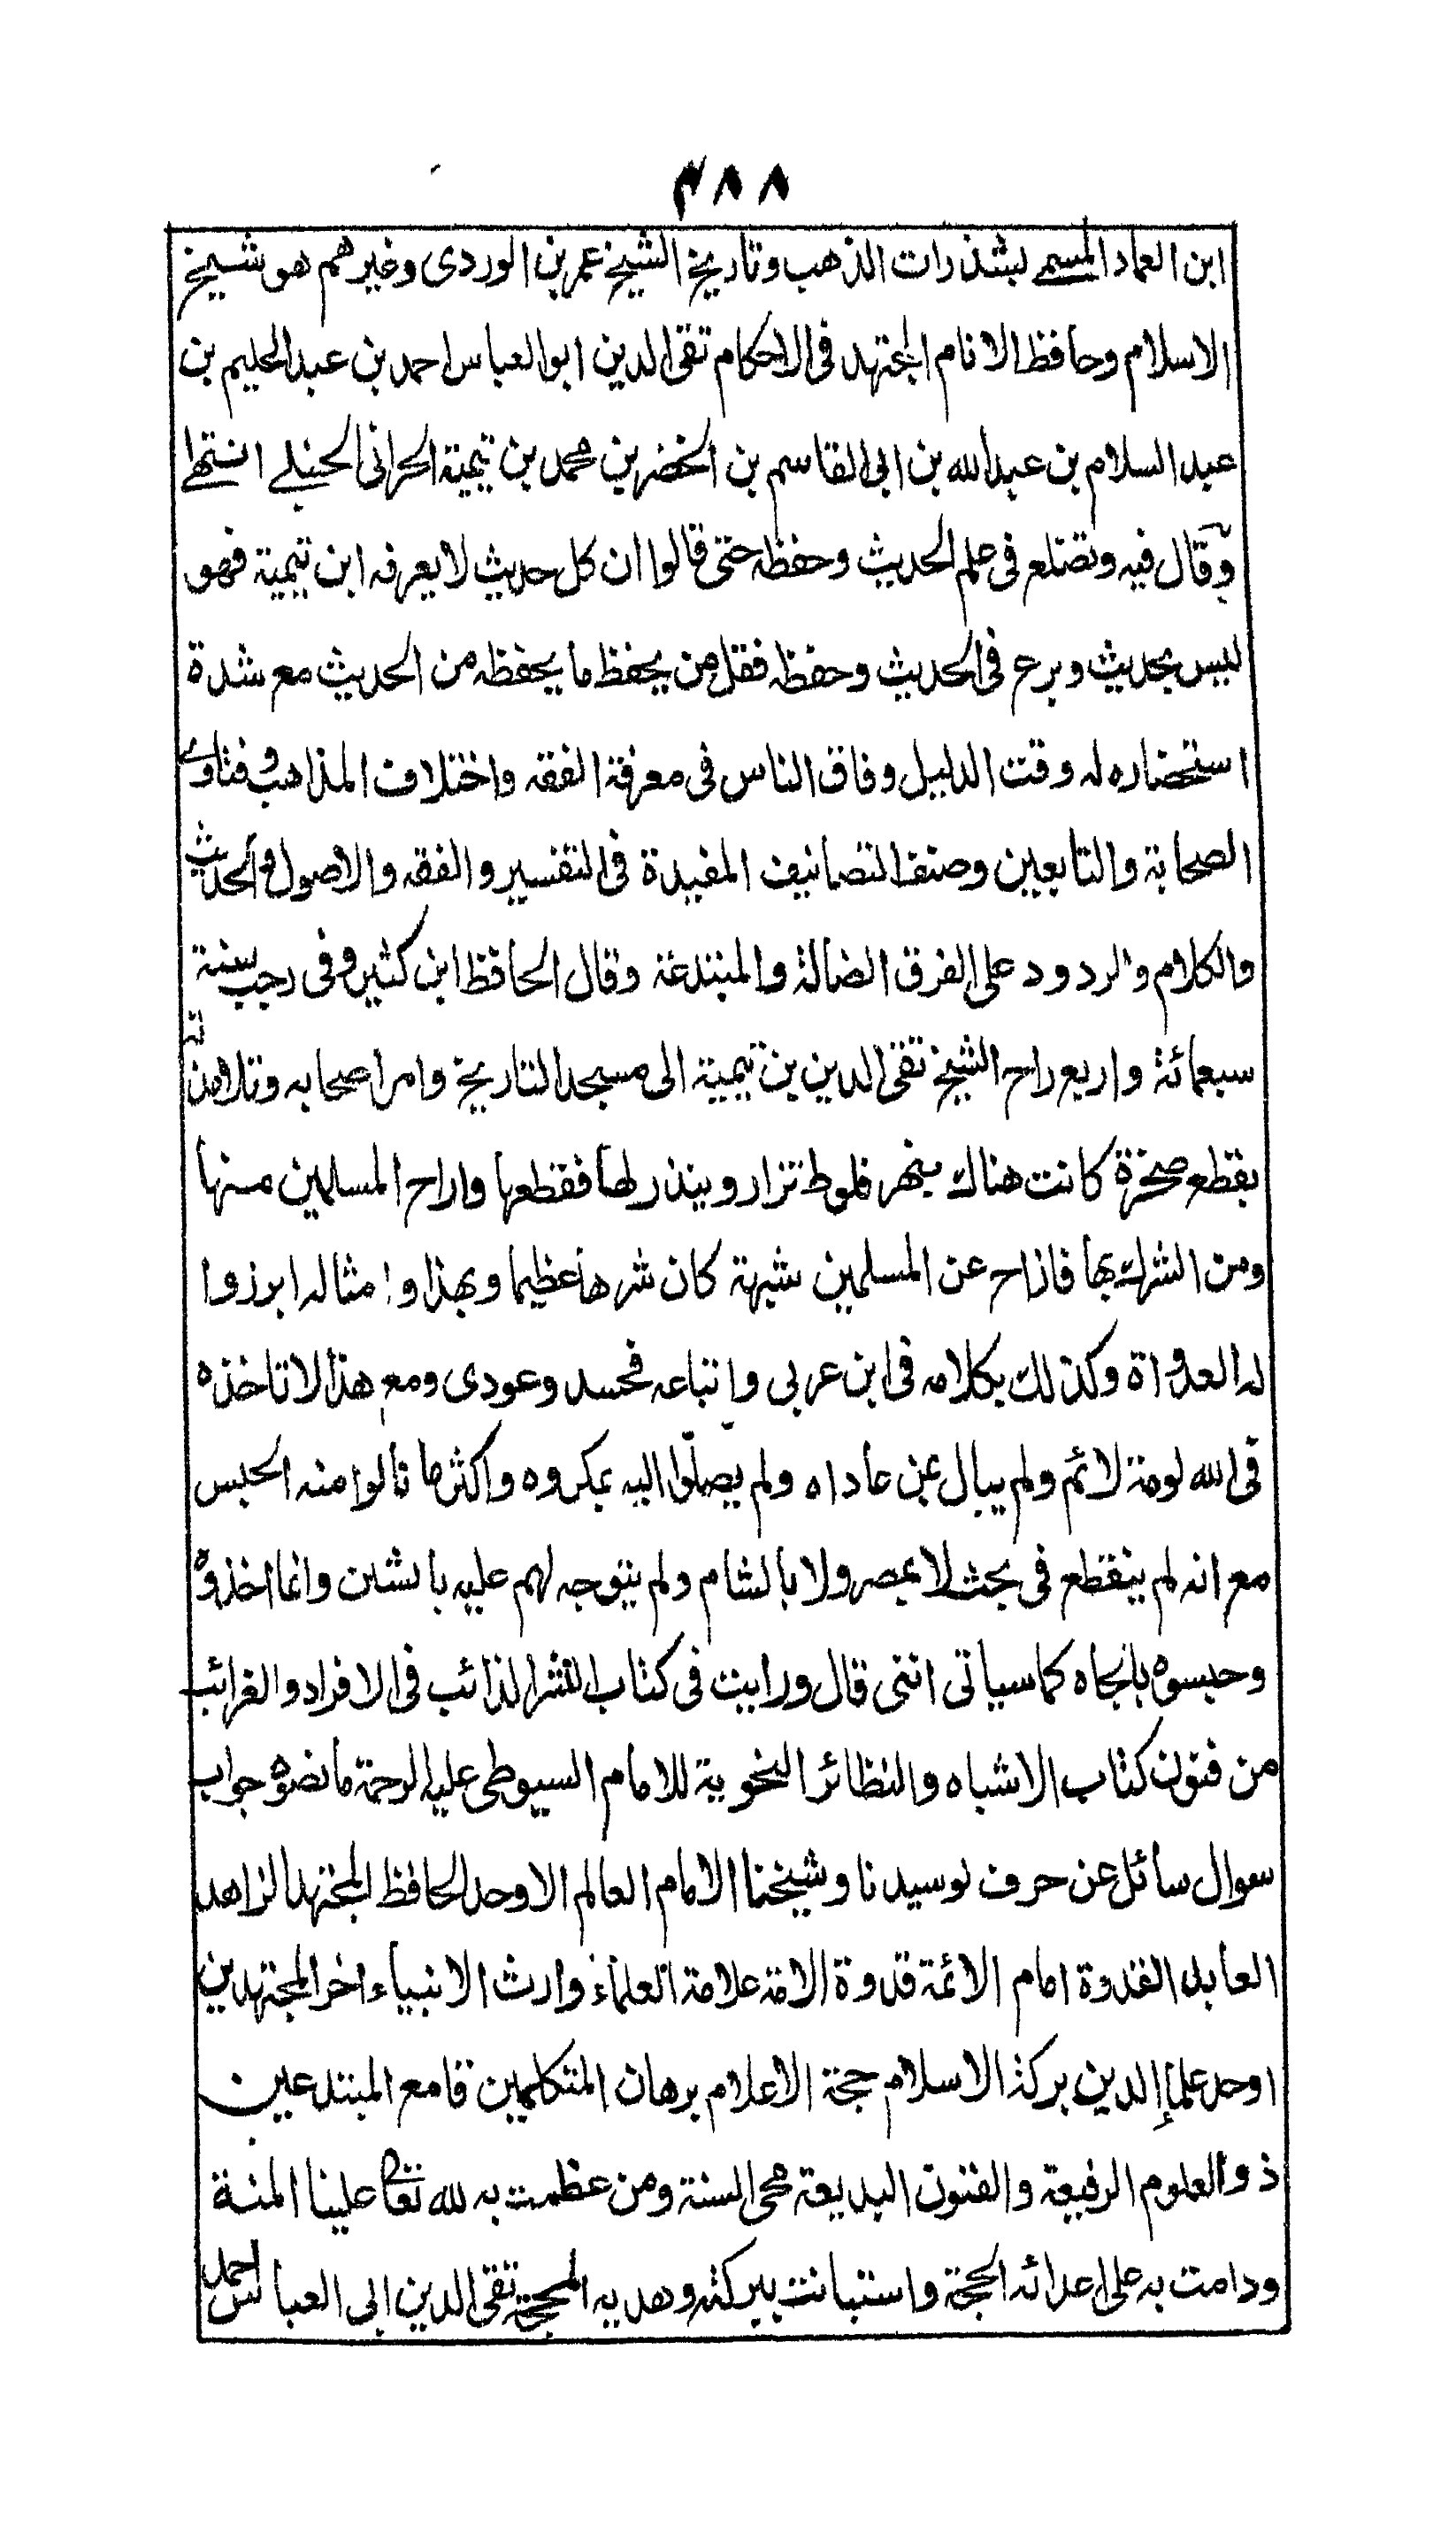 ٤٨٨
ابن العماد المسمے بشذرات الذهب وتاريخ الشيخ عمر بن الوردى وغيرهم هو شيخ
الاسلام وحافظ الانام المجتهد فى الاحكام تقى الدين ابو العباس احمد بن عبد الحليم بن
عبد السلام بن عبد الله بن ابى القاسم بن الخضر بن محمد بن تيمية الحرانى الحنبلے انتهے
وقال فيه وتضلع فى علم الحديث وحفظه حتى قالوا ان كل حديث لا يعرفه ابن تيمية فهو
ليس بحديث وبرع فى الحديث وحفظه فقل من يحفظ ما يحفظه من الحديث مع شدة
استحضاره له وقت الدليل وفاق الناس فى معرفة الفقه واختلاف المذاهب وفتاوے
الصحابة والتابعين وصنف التصانيف المفيدة فى التفسير والفقه والاصول والحديث
والكلام والردود على الفرق الضالة والمبتدعة وقال الحافظ ابن كثير وفى رجب سنة
سبعمائة واربع راح الشيخ تقى الدين بن تيمية الى مسجد التاريخ وامر اصحابه وتلامذته
بقطع صخرة كانت هناك بنهر قلوط تزار وينذر لها فقطعها واراح المسلمين منها
ومن الشرك بها فازاح عن المسلمين شبهة كان شرها عظيما وبهذا وامثاله ابرزوا
له العداوة وكذلك بكلامه فى ابن عربى واتباعه فحسد وعودى ومع هذا لا تاخذه
فى الله لومة لائم ولم يبال بمن عاداه ولم يصلوا اليه بمكروه واكثر ما نالوا منه الحبس
مع انه لم ينقطع فى بحث لا بمصر ولا بالشام ولم يتوجه لهم عليه با يشين وانما اخذوه
وحبسوه بالجاه كما سياتى انتهى قال ورايت فى كتاب النشر الذائب فى الافراد والغرائب
من فنون كتاب الاشباه والنظائر النحوية للامام السيوطى عليه الرحمة ما نصوه جواب
سوال سائل عن حرف لو سيدنا وشيخنا الامام العالم الاوحد الحافظ المجتهد الزاهد
العابد القدوة امام الائمة قدوة الامة علامة العلماء وارث الانبياء اخر المجتهدين
اوحد علماء الدين بركة الاسلام حجة الاعلام برهان المتكلمين قامع المبتدعين
ذو العلوم الرفيعة والفنون البديعة محى السنة ومن عظمت به لله تعا علينا المنة
ودامت به على اعدائه الحجة واستبانت ببركته وهديه المحجة تقى الدين ابى العباس احمد